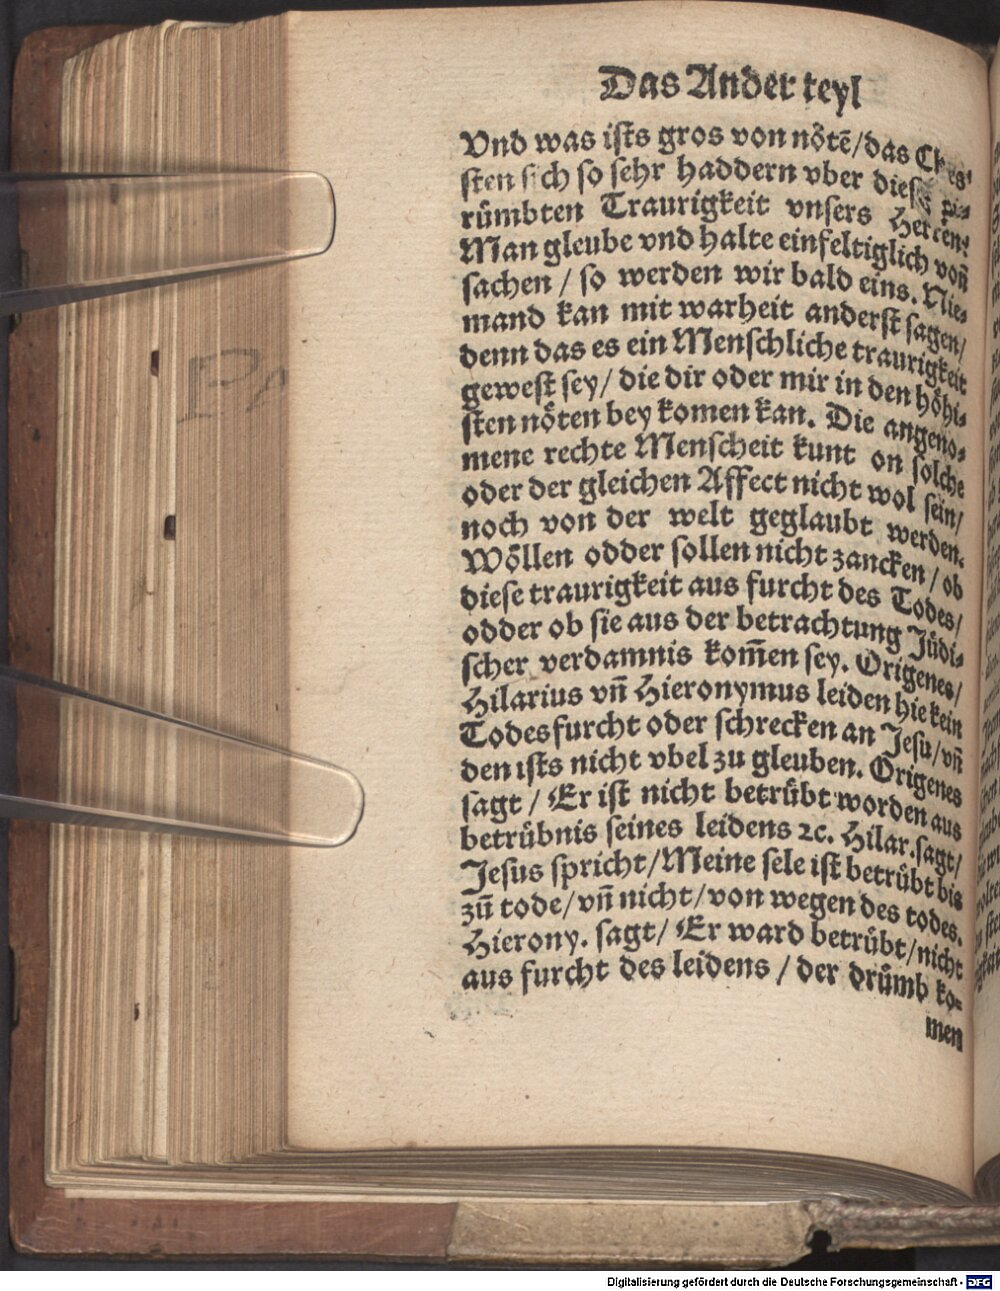 Das Ander teyl
Vnd was ists gros von nötē/das
sten sich so sehr haddern vber
rümbten Traurigkeit vnsers
Man gleube vnd halte einfeltiglich von̄
sachen / so werden wir bald eins. Nie-
mand kan mit warheit anderst sagen/
denn das es ein Menschliche traurigkeit
gewest sey/ die dir oder mir in den höhi-
sten nöten bey komen kan. Die angeno-
mene rechte Menscheit kunt on solche
oder der gleichen Affect nicht wol sein/
noch von der welt geglaubt werden.
Wöllen odder sollen nicht zancken / ob
diese traurigkeit aus furcht des Todes/
odder ob sie aus der betrachtung Jüdi-
scher verdamnis kom̄en sey. Origenes/
Hilarius vn̄ Hieronymus leiden hie kein
Todesfurcht oder schrecken an Jesu/vn̄
den ists nicht vbel zu gleuben. Origenes
sagt / Er ist nicht betrübt worden aus
betrübnis seines leidens ⁊c. Hilar.sagt/
Jesus spricht/Meine sele ist betrübt bis
zū tode/vn̄ nicht/von wegen des todes.
Hierony. sagt/ Er ward betrübt/nicht
aus furcht des leidens / der drümb ko-
men
Digitalisierung gefördert durch die Deutsche Forschungsgemeinschaft - DFG